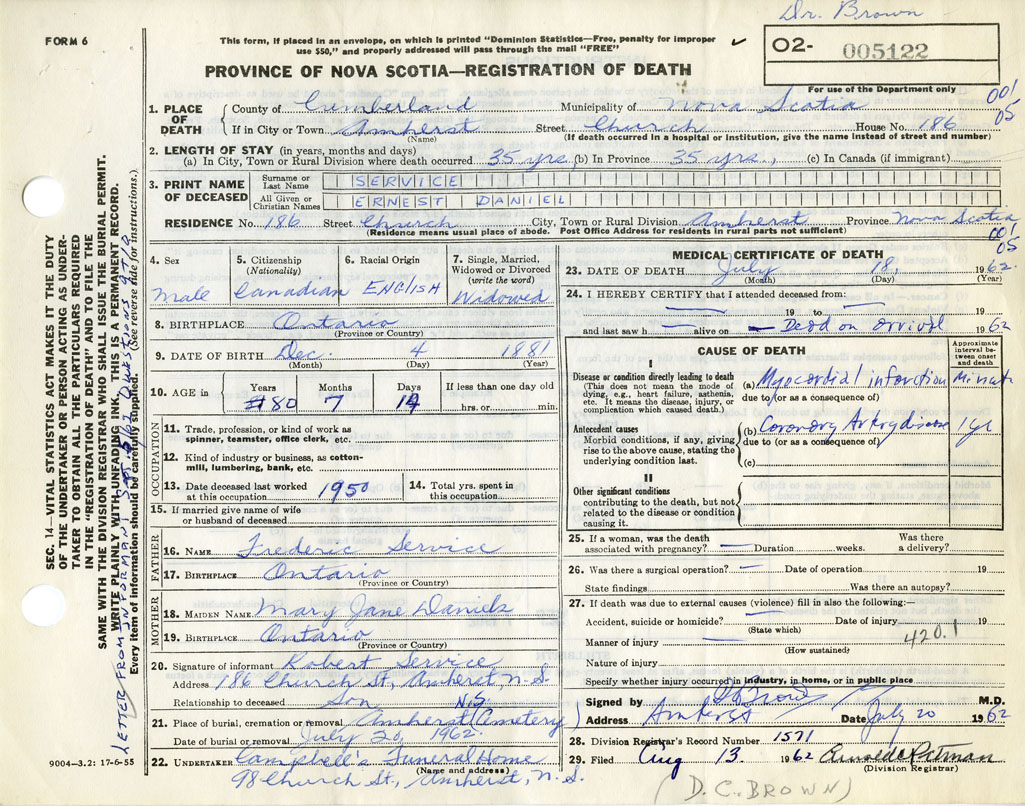 Dr. Brown
FORM 6
This form, if placed in an envelope, on which is printed "Dominion Statistics—Free, penalty for improper
use $50," and properly addressed will pass through the mail "FREE"
O2- 005122
PROVINCE OF NOVA SCOTIA—REGISTRATION OF DEATH
For use of the Department only
001
05
1. PLACE OF DEATH County of Cumberland Municipality of Nova Scotia
If in City or Town Amherst Street Church House No. 186
(Name) (If death occurred in a hospital or institution, give the name instead of street and number)
2. LENGTH OF STAY (in years, months and days)
(a) In City, Town or Rural Division where death occurred 35 yrs (b) In Province 35 yrs., (c) In Canada (if immigrant)
3. PRINT NAME OF DECEASED Surname or Last Name SERVICE
All Given or Christian Names ERNEST DANIEL
RESIDENCE No. 186 Street Church City, Town or Rural Division Amherst Province Nova Scotia
(Residence means usual place of abode. Post Office Address for residents in rural parts not sufficient)
001
05
4. Sex Male
5. Citizenship (Nationality) Canadian
6. Racial Origin ENGLISH
7. Single, Married, Widowed or Divorced (write the word) Widowed
8. BIRTHPLACE Ontario
(Province or Country)
9. DATE OF BIRTH Dec. 4 1881
(Month) (Day) (Year)
10. AGE in Years 80 Months 7 Days 14 If less than one day old
hrs. or min.
OCCUPATION
11. Trade, profession, or kind of work as
spinner, teamster, office clerk, etc.
12. Kind of industry or business, as cotton-
mill, lumbering, bank, etc.
13. Date deceased last worked at this occupation 1950 14. Total yrs. spent in this occupation
15. If married give name of wife
or husband of deceased
FATHER
16. NAME Frederic Service
17. BIRTHPLACE Ontario
(Province or Country)
MOTHER
18. MAIDEN NAME Mary Jane Daniels
19. BIRTHPLACE Ontario
(Province or Country)
20. Signature of informant Robert Service
Address 186 Church St, Amherst, N.S.
Relationship to deceased Son N.S.
21. Place of burial, cremation or removal Amherst Cemetery
Date of burial or removal July 20, 1962
22. UNDERTAKER Campbell's Funeral Home
(Name and address)
98 Church St, Amherst, N.S.
MEDICAL CERTIFICATE OF DEATH
23. DATE OF DEATH July 18, 1962
(Month) (Day) (Year)
24. I HEREBY CERTIFY that I attended deceased from:
19 to 19
and last saw h alive on — Dead on arrival 1962
CAUSE OF DEATH
Approximate interval between onset and death
I
Disease or condition directly leading to death
(This does not mean the mode of
dying, e.g., heart failure, asthenia,
etc. It means the disease, injury, or
complication which caused death.)
(a) Myocardial infarction
due to (or as a consequence of)
Antecedent causes
Morbid conditions, if any, giving
rise to the above cause, stating the
underlying condition last.
(b) Coronary Artery disease 1 yr
due to (or as a consequence of)
(c)
II
Other significant conditions
contributing to the death, but not
related to the disease or condition
causing it.
25. If a woman, was the death Was there
associated with pregnancy? — Duration weeks. a delivery?
26. Was there a surgical operation? — Date of operation 19
State findings Was there an autopsy?
27. If death was due to external causes (violence) fill in also the following:—
Accident, suicide or homicide? Date of injury 19
(State which)
420.1
Manner of injury
(How sustained)
Nature of injury
Specify whether injury occurred in industry, in home, or in public place
Signed by M.D.
Address Amherst Date July 20 1962
28. Division Registrar's Record Number 1571
29. Filed Aug 13 1962
(Division Registrar)
(D.C. BROWN)
SEC. 14—VITAL STATISTICS ACT MAKES IT THE DUTY
OF THE UNDERTAKER OR PERSON ACTING AS UNDER-
TAKER TO OBTAIN ALL THE PARTICULARS REQUIRED
IN THE "REGISTRATION OF DEATH" AND TO FILE THE
SAME WITH THE DIVISION REGISTRAR WHO SHALL ISSUE THE BURIAL PERMIT.
WRITE PLAINLY WITH UNFADING INK. THIS IS A PERMANENT RECORD.
Every item of information should be carefully supplied. (See reverse side for instructions.)
LETTER FROM INFORMANT
9004—3.2: 17-6-55